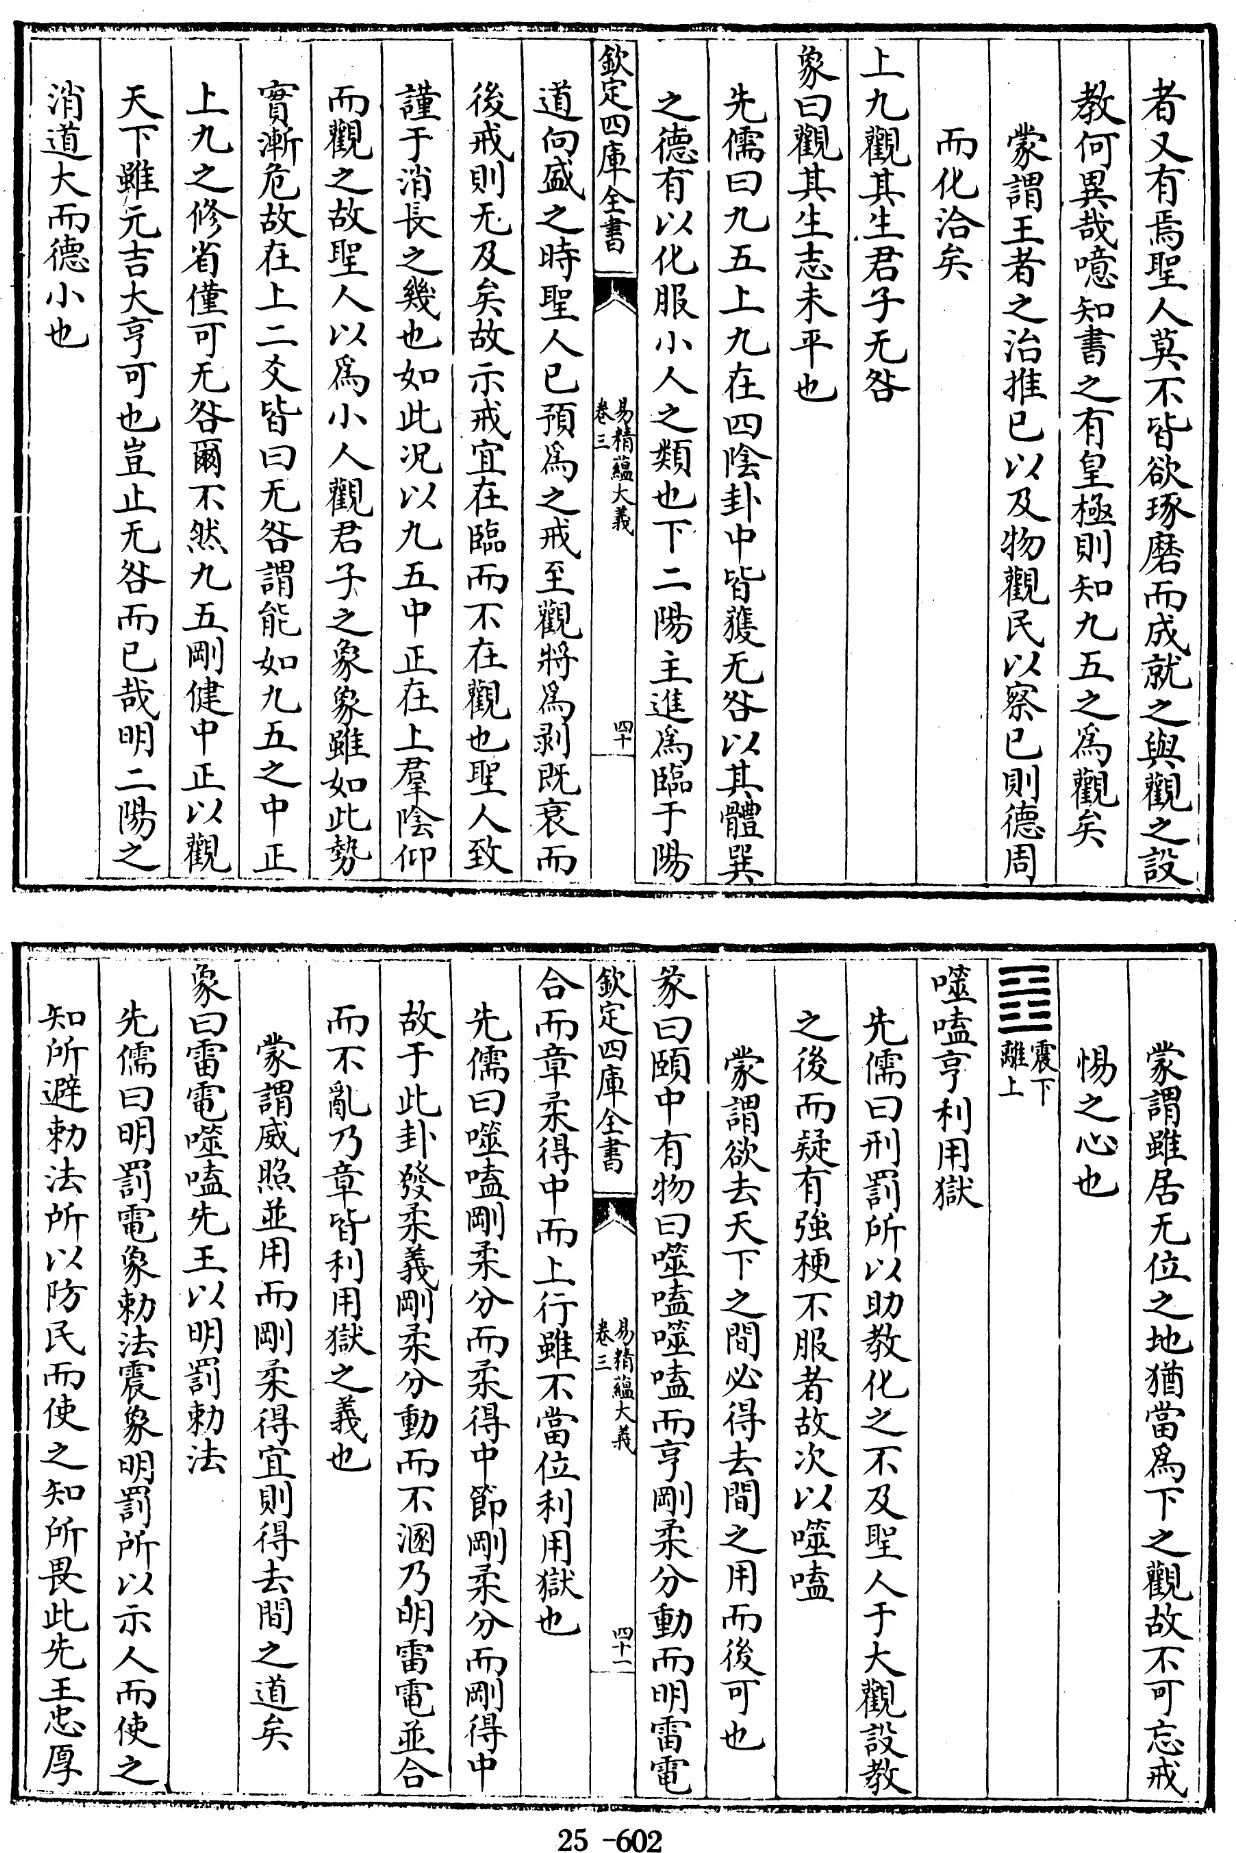 者又有焉聖人莫不皆欲琢磨而成就之與觀之設
教何異哉噫知書之有皇極則知九五之爲觀矣
蒙謂王者之治推已以及物觀民以察已則德周
而化洽矣
上九觀其生君子无咎
象曰觀其生志未平也
先儒曰九五上九在四陰卦中皆獲无咎以其體巽
之德有以化服小人之類也下二陽主進爲臨于陽
欽定四庫全書
易精蘊大義
卷三
四十
道向盛之時聖人已預爲之戒至觀將爲剥既衰而
後戒則无及矣故示戒宜在臨而不在觀也聖人致
謹于消長之幾也如此况以九五中正在上羣陰仰
而觀之故聖人以爲小人觀君子之象象雖如此勢
實漸危故在上二爻皆曰无咎謂能如九五之中正
上九之修省僅可无咎爾不然九五剛健中正以觀
天下雖元吉大亨可也豈止无咎而已哉明二陽之
消道大而德小也
蒙謂雖居无位之地猶當爲下之觀故不可忘戒
惕之心也
震下
離上
噬嗑亨利用獄
先儒曰刑罰所以助教化之不及聖人于大觀設教
之後而疑有強梗不服者故次以噬嗑
蒙謂欲去天下之間必得去間之用而後可也
彖曰頤中有物曰噬嗑噬嗑而亨剛柔分動而明雷電
欽定四庫全書
易精蘊大義
卷三
四十一
合而章柔得中而上行雖不當位利用獄也
先儒曰噬嗑剛柔分而柔得中節剛柔分而剛得中
故于此卦發柔義剛柔分動而不溷乃明雷電並合
而不亂乃章皆利用獄之義也
蒙謂威照並用而剛柔得宜則得去間之道矣
象曰雷電噬嗑先王以明罰勅法
先儒曰明罰電象勅法震象明罰所以示人而使之
知所避勅法所以防民而使之知所畏此先王忠厚
25-602